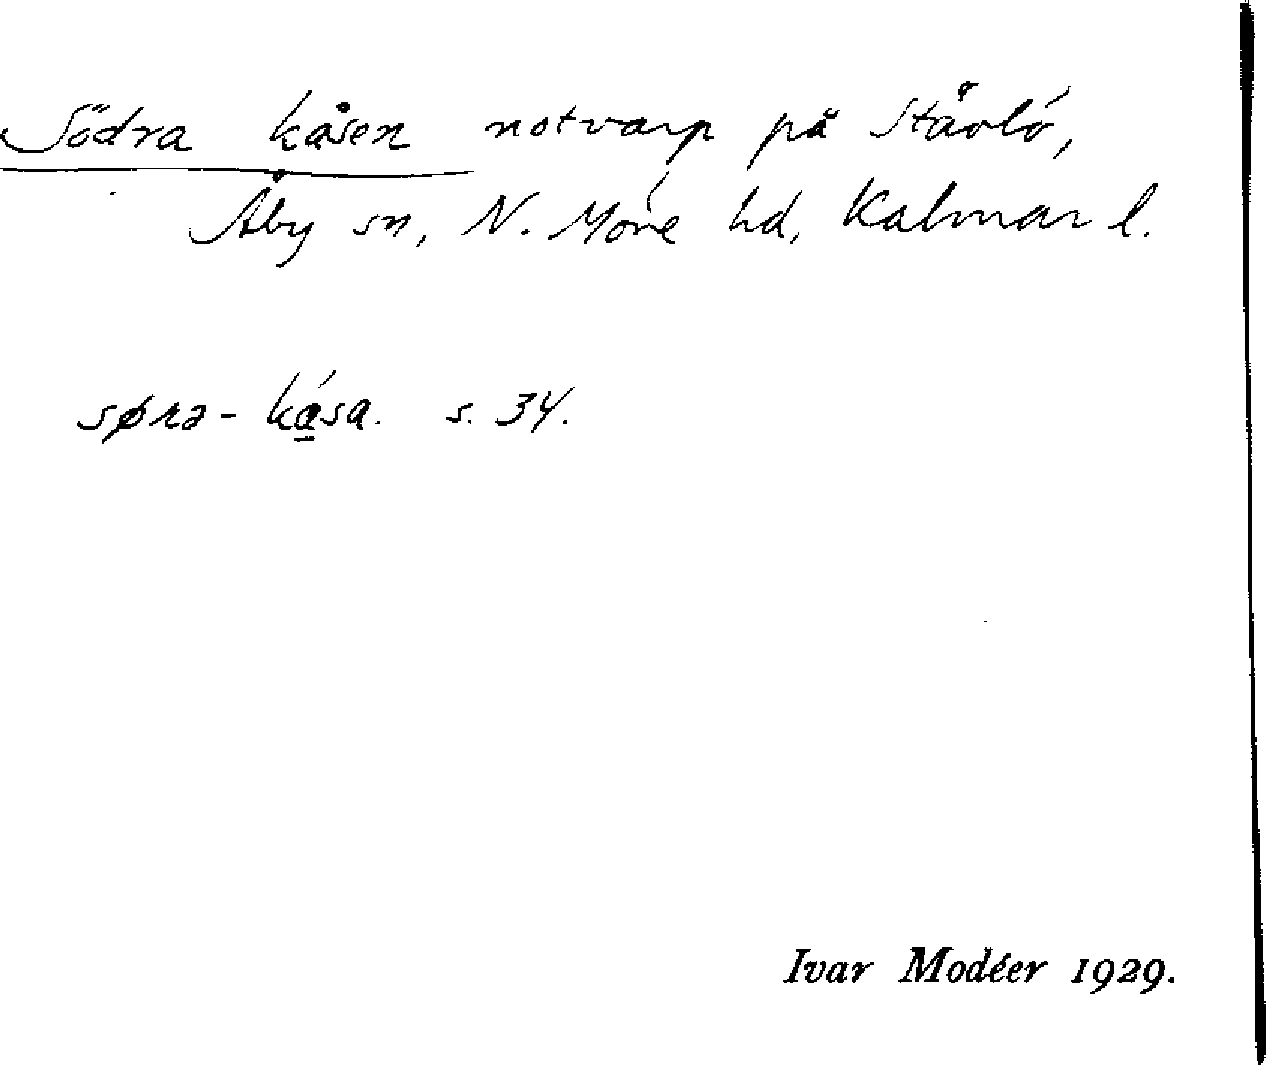 Södra kåsen notvarp på Stävlö,
Åby sn, N. Möre hd, Kalmar l.
søra - kása. s. 34.
Ivar Modéer 1929.